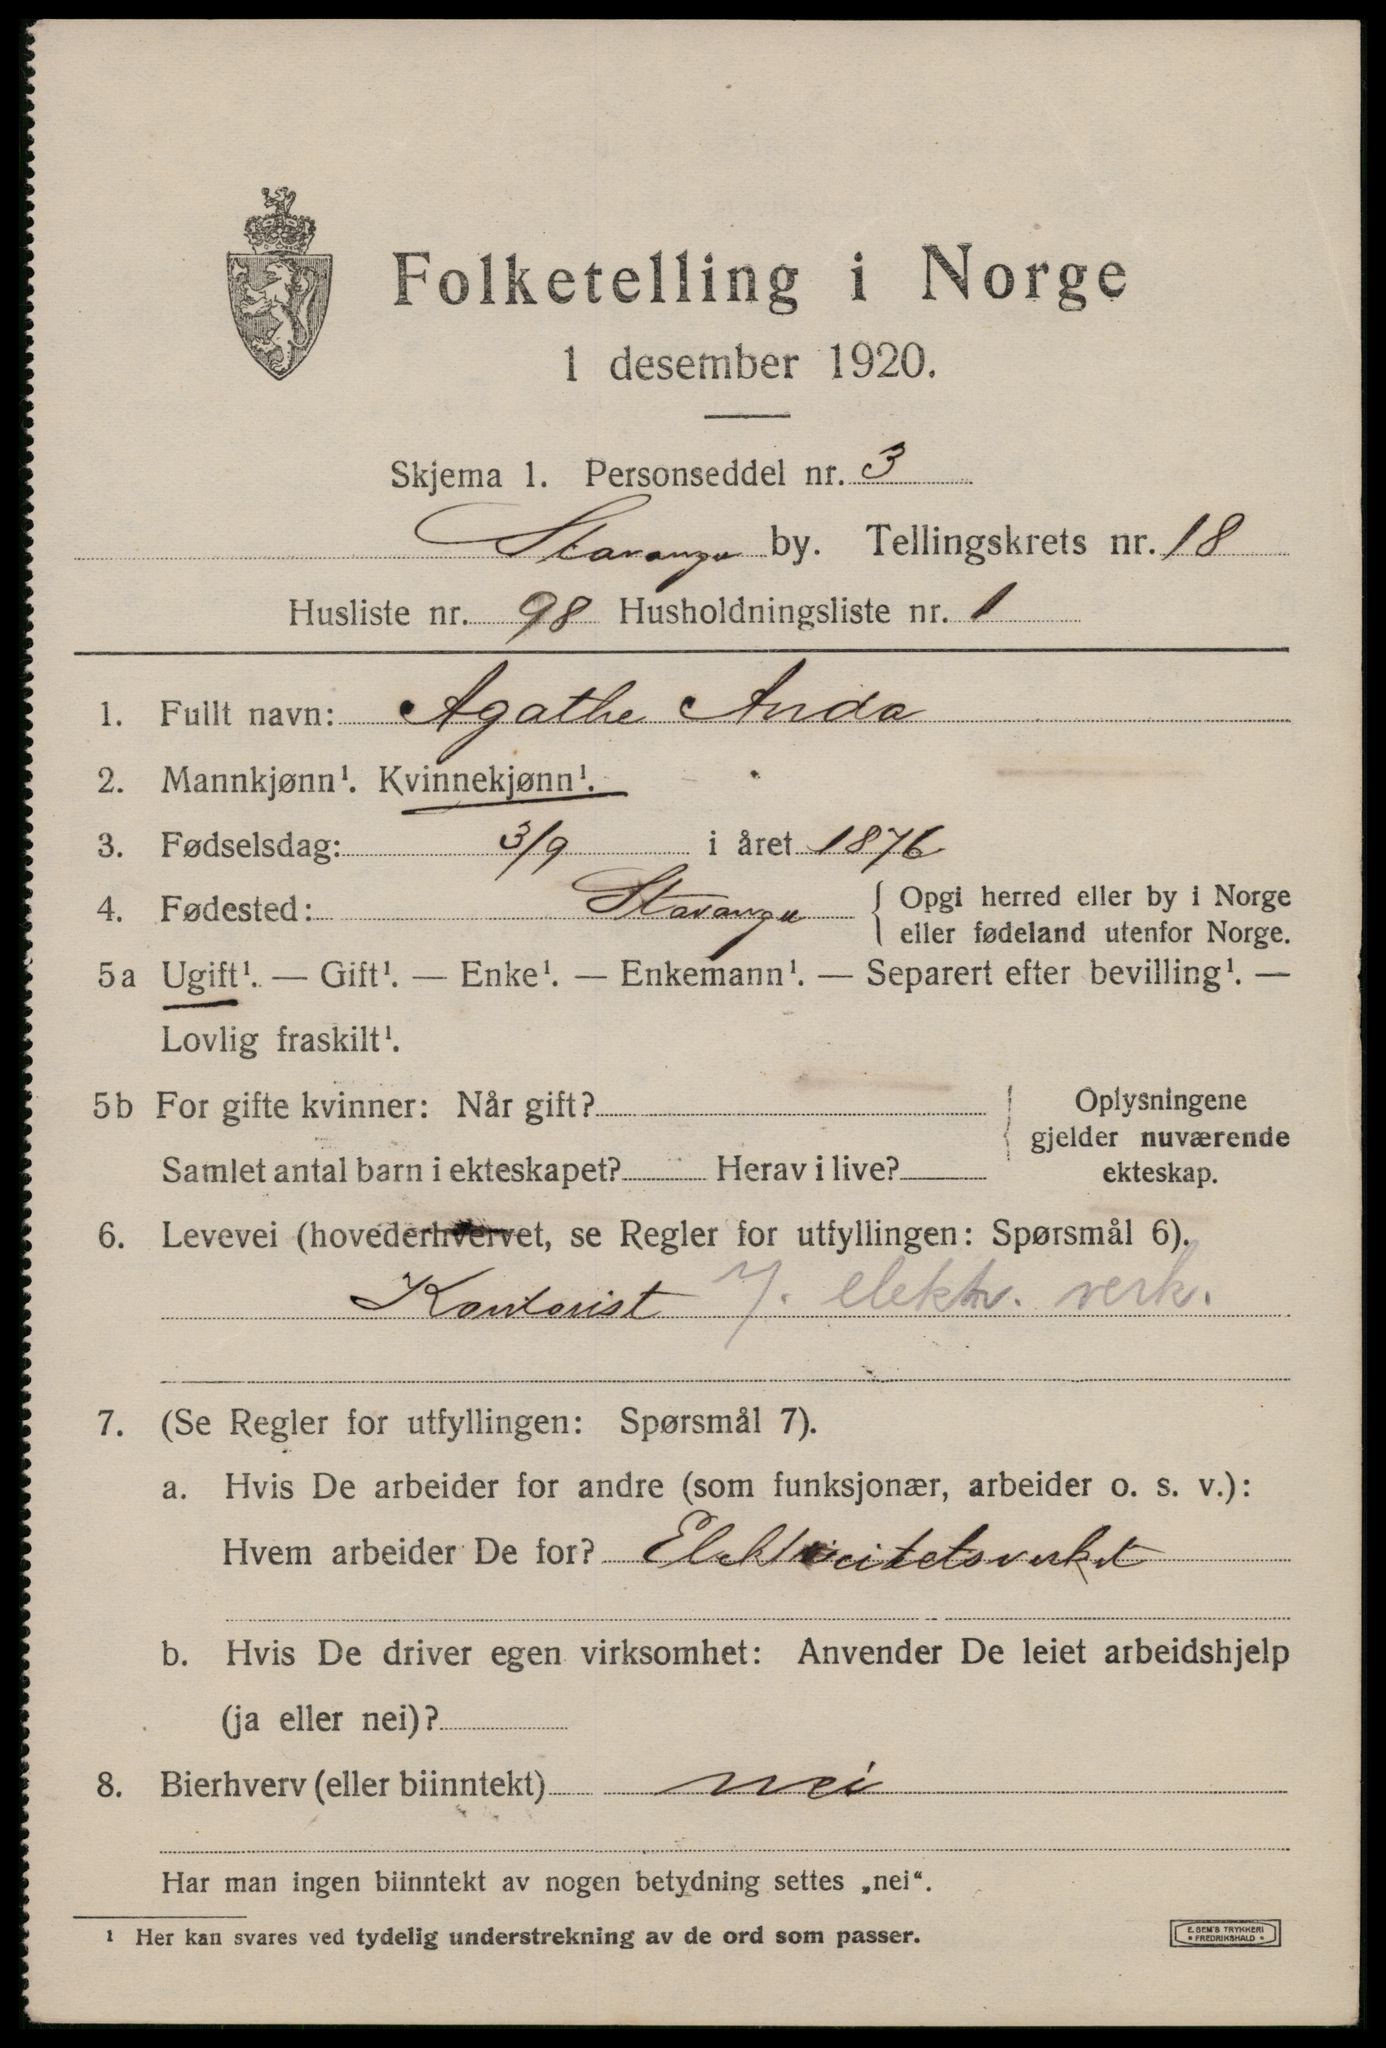 Folketelling i Norge
1 desember 1920.
Skjema 1. Personseddel nr. 3
Stavanger by. Tellingskrets nr. 18
Husliste nr. 98 Husholdningsliste nr. 1
1. Fullt navn: Agathe Anda
2. Mannkjønn¹. Kvinnekjønn¹.
3. Fødselsdag: 3/9 i året 1876
4. Fødested: Stavanger { Opgi herred eller by i Norge
eller fødeland utenfor Norge.
5a Ugift¹. — Gift¹. — Enke¹. — Enkemann¹. — Separert efter bevilling¹. —
Lovlig fraskilt¹.
5b For gifte kvinner: Når gift? { Oplysningene
gjelder nuværende
Samlet antal barn i ekteskapet? Herav i live? ekteskap.
6. Levevei (hovederhvervet, se Regler for utfyllingen: Spørsmål 6).
Kontorist elektr. verk.
7. (Se Regler for utfyllingen: Spørsmål 7).
a. Hvis De arbeider for andre (som funksjonær, arbeider o. s. v.):
Hvem arbeider De for? Elektricitetsverket
b. Hvis De driver egen virksomhet: Anvender De leiet arbeidshjelp
(ja eller nei)?
8. Bierhverv (eller biinntekt) nei
Har man ingen biinntekt av nogen betydning settes „nei“.
¹ Her kan svares ved tydelig understrekning av de ord som passer.
E. SEM'S TRYKKERI
• FREDRIKSHALD •